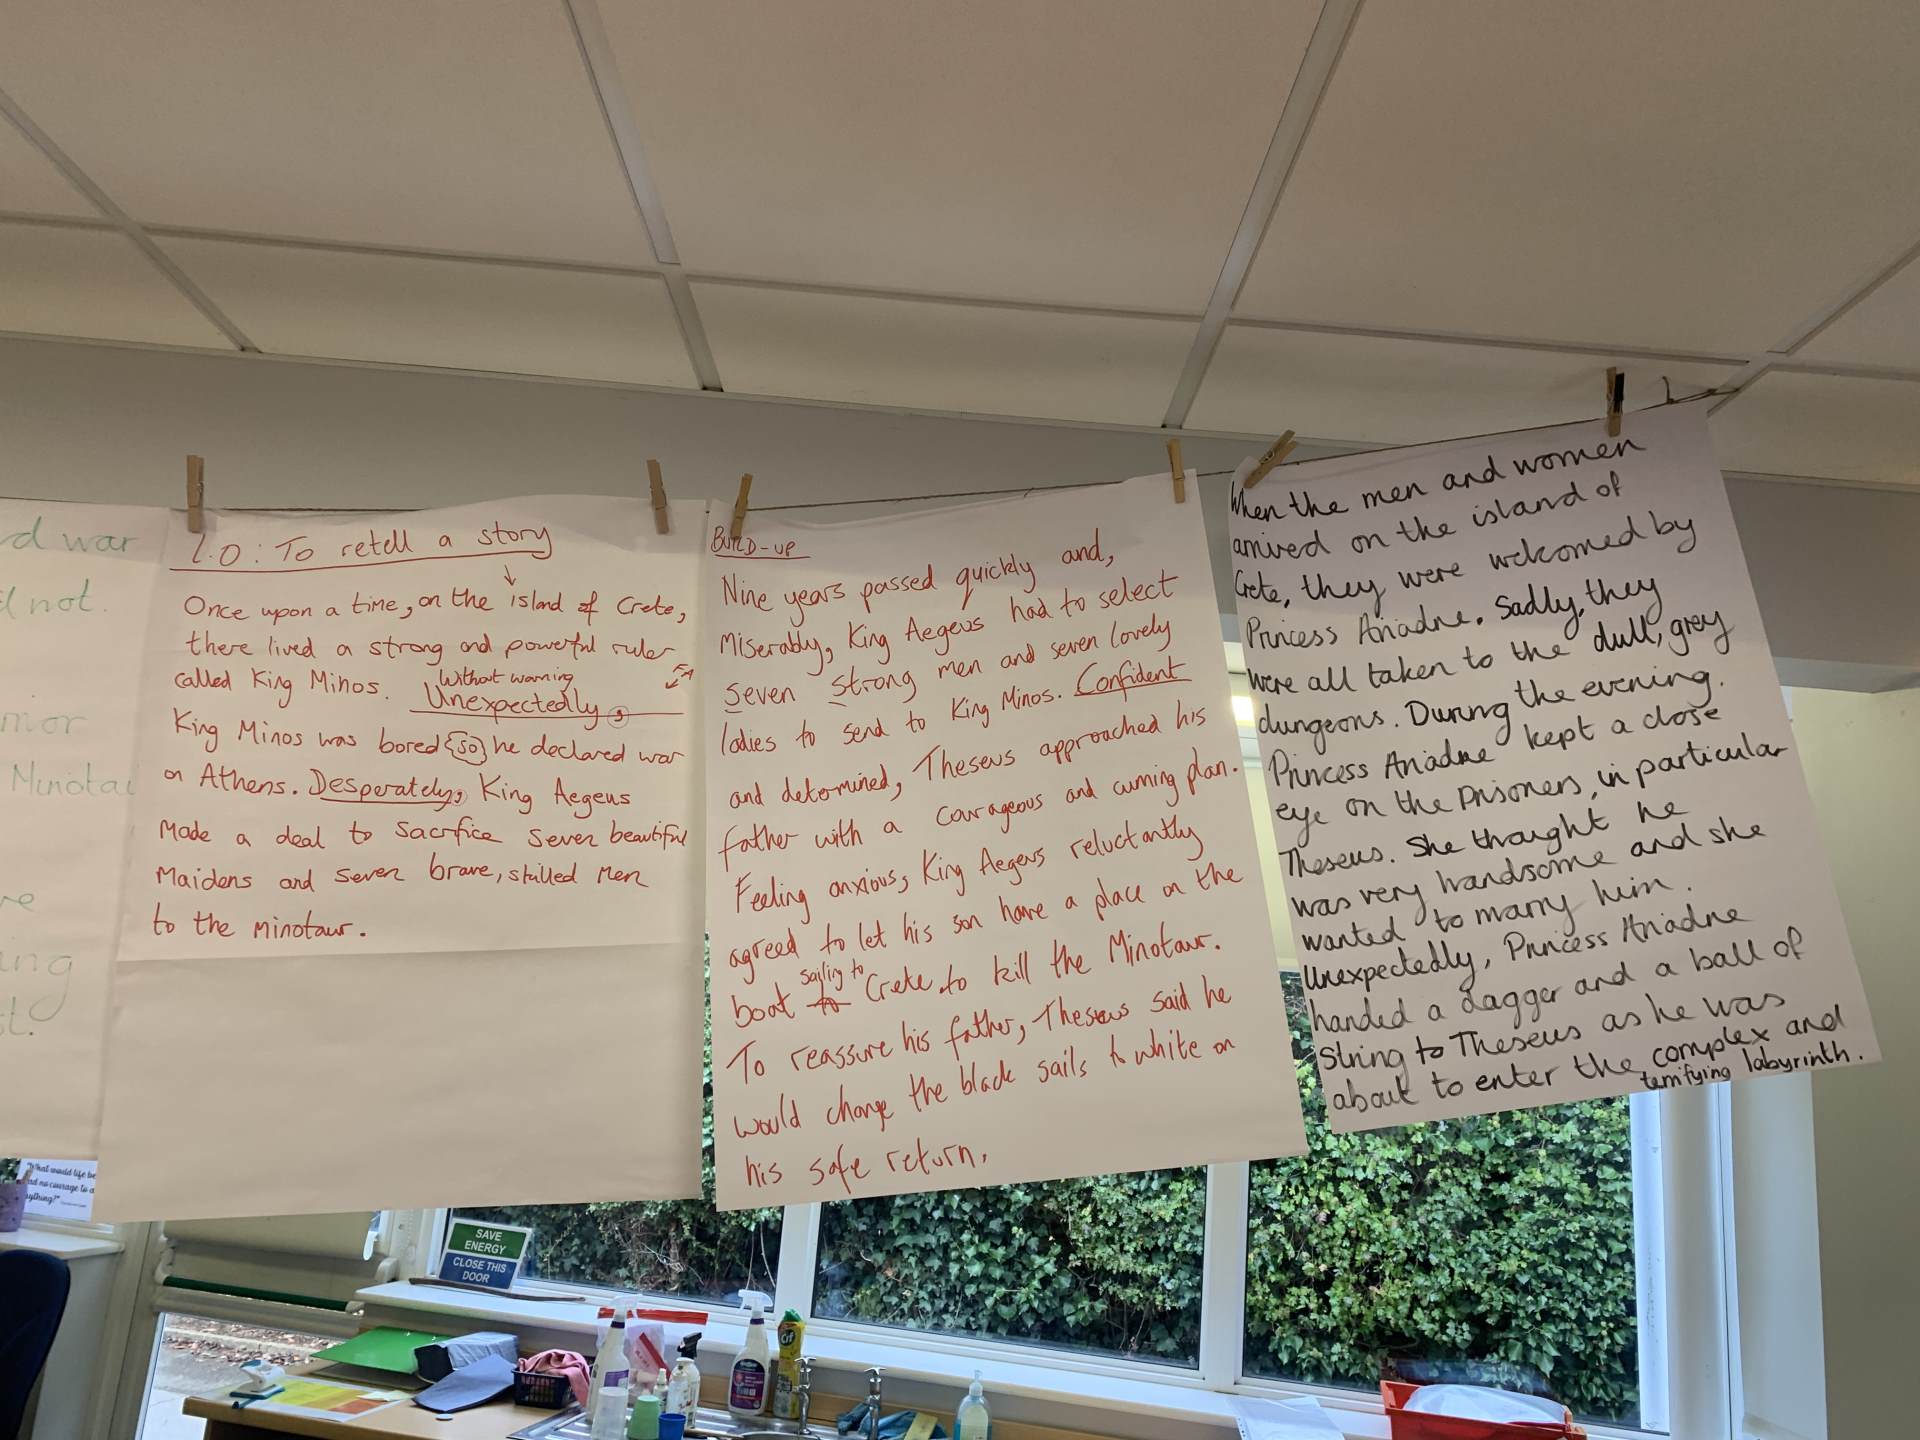 d war
d not.
mor
Minota
re
ing
st.
L.O: To retell a story
Once upon a time, on the island of Crete,
there lived a strong and powerful ruler
called King Minos. Without warning
Unexpectedly,
King Minos was bored {so} he declared war
on Athens. Desperately, King Aegeus
made a deal to sacrifice seven beautiful
Maidens and seven brave, skilled men
to the minotaur.
BUILD-UP
Nine years passed quickly and,
miserably, King Aegeus had to select
seven strong men and seven lovely
ladies to send to King Minos. Confident
and determined, Theseus approached his
father with a courageous and cunning plan.
Feeling anxious, King Aegeus reluctantly
agreed to let his son have a place on the
boat to sailing to Crete to kill the Minotaur.
To reassure his father, Theseus said he
would change the black sails to white on
his safe return.
When the men and women
arrived on the island of
Crete, they were welcomed by
Princess Ariadne. Sadly, they
were all taken to the dull, grey
dungeons. During the evening.
Princess Ariadne kept a close
eye on the prisoners, in particular
Theseus. She thought he
was very handsome and she
wanted to marry him.
Unexpectedly, Princess Ariadne
handed a dagger and a ball of
string to Theseus as he was
about to enter the complex and
terrifying labyrinth.
"What would life be
had no courage to a
nything?"
SAVE
ENERGY
CLOSE THIS
DOOR
Cif